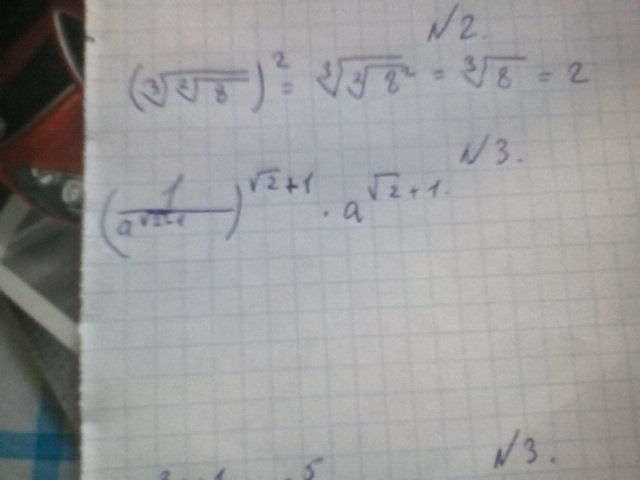 N2.
(∛√8)² = ∛√8² = ∛8 = 2
N3.
(1/a^(√2-1))^(√2+1) · a^(√2+1).
N3.